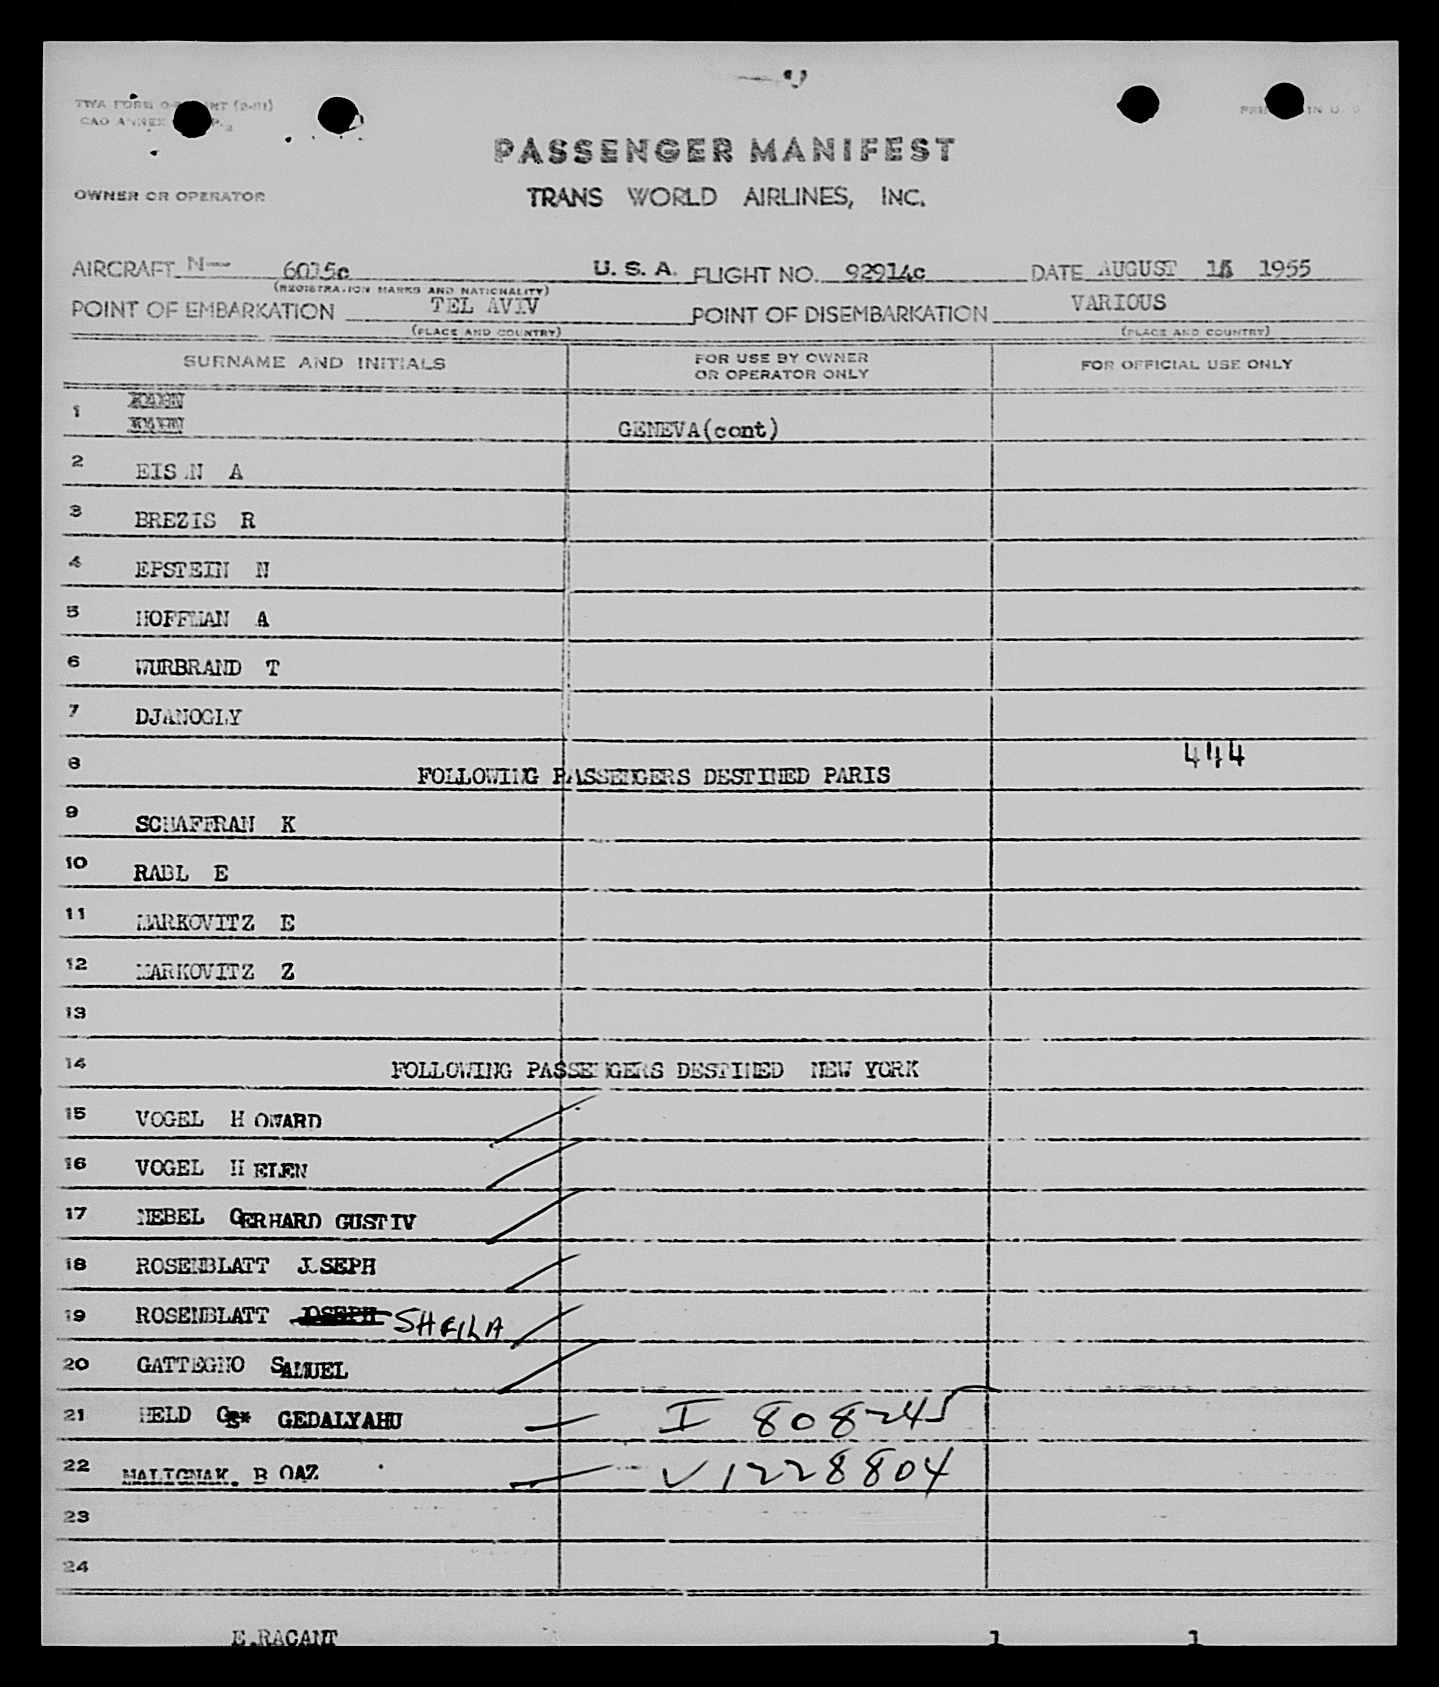 PASSENGER MANIFEST
OWNER OR OPERATOR
TRANS WORLD AIRLINES, INC.
AIRCRAFT N— 6015c U. S. A. FLIGHT NO. 92914c DATE AUGUST 1955
(REGISTRATION MARKS AND NATIONALITY)
POINT OF EMBARKATION TEL AVIV POINT OF DISEMBARKATION VARIOUS
(PLACE AND COUNTRY) (PLACE AND COUNTRY)
SURNAME AND INITIALS FOR USE BY OWNER OR OPERATOR ONLY FOR OFFICIAL USE ONLY
1 GENEVA(cont)
2 A
3 BREZIS R
4 EPSTEIN N
5 HOFFMAN A
6 WURBRAND T
7 DJANOGLY
8 FOLLOWING PASSENGERS DESTINED PARIS 444
9 SCHAFFRAN K
10 RABL E
11 MARKOVITZ E
12 MARKOVITZ Z
13
14 FOLLOWING PASSENGERS DESTINED NEW YORK
15 VOGEL H OWARD
16 VOGEL H ELEN
17 NEBEL GERHARD GUSTIV
18 ROSENBLATT JOSEPH
19 ROSENBLATT JOSEPH SHEILA
20 GATTEGNO SAMUEL
21 HELD GEDALYAHU I 808245
22 MALIGNAK. B OAZ V1228804
23
24
E.RACANT 1 1